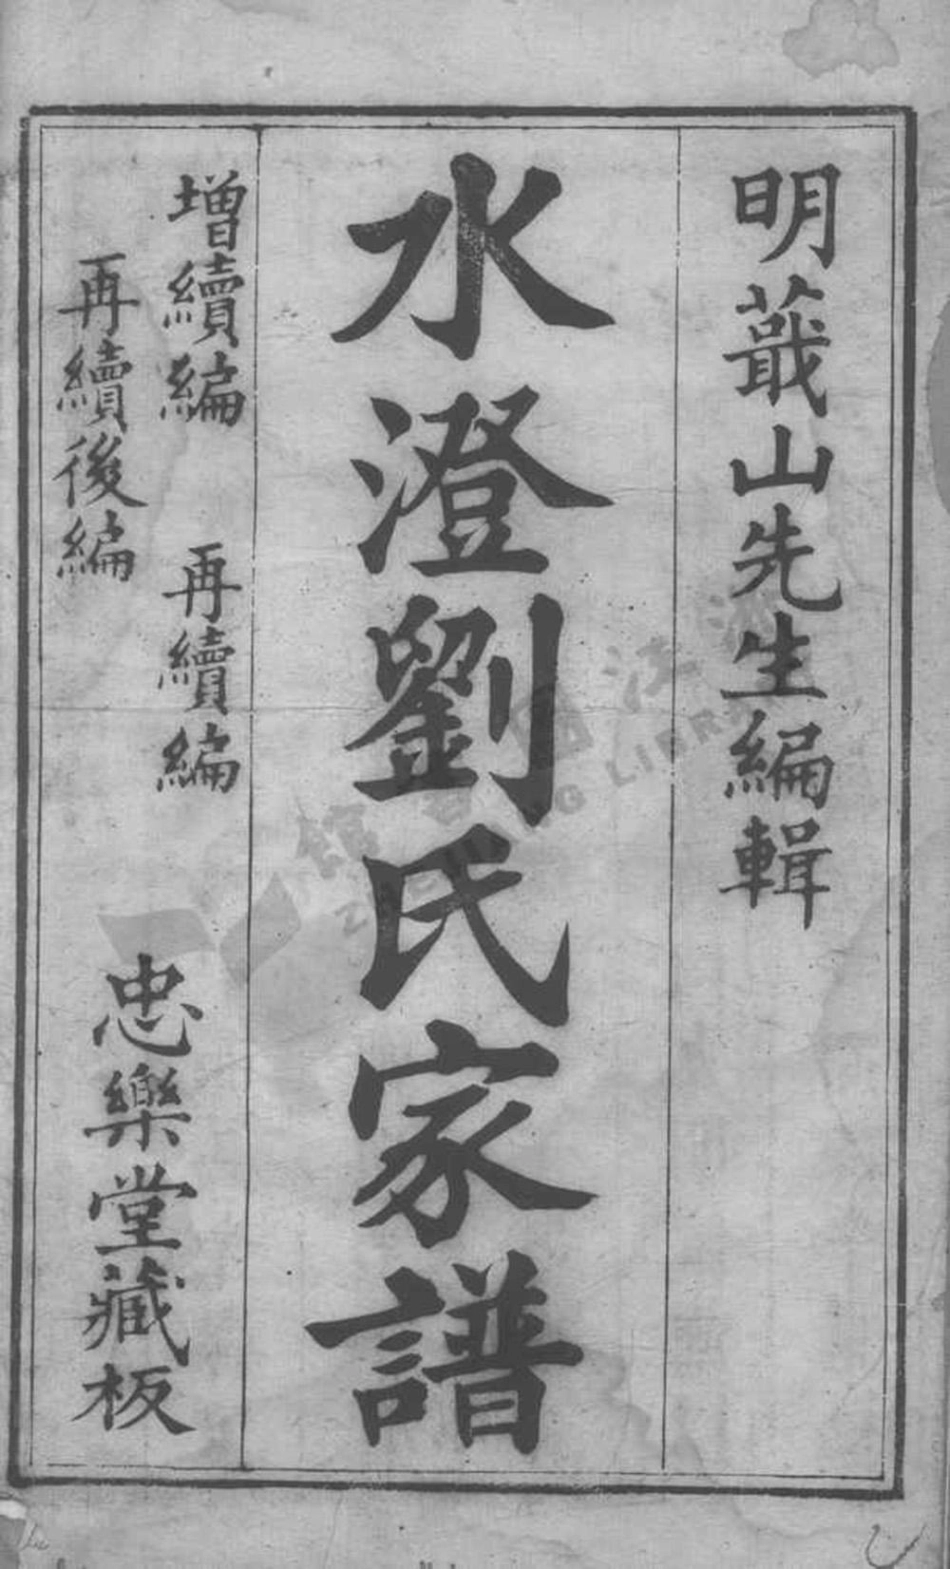 明蕺山先生編輯
水澄劉氏家譜
增續編 再續編
再續後編
忠樂堂藏板
浙江圖書館
ZHEJIANG LIBRARY